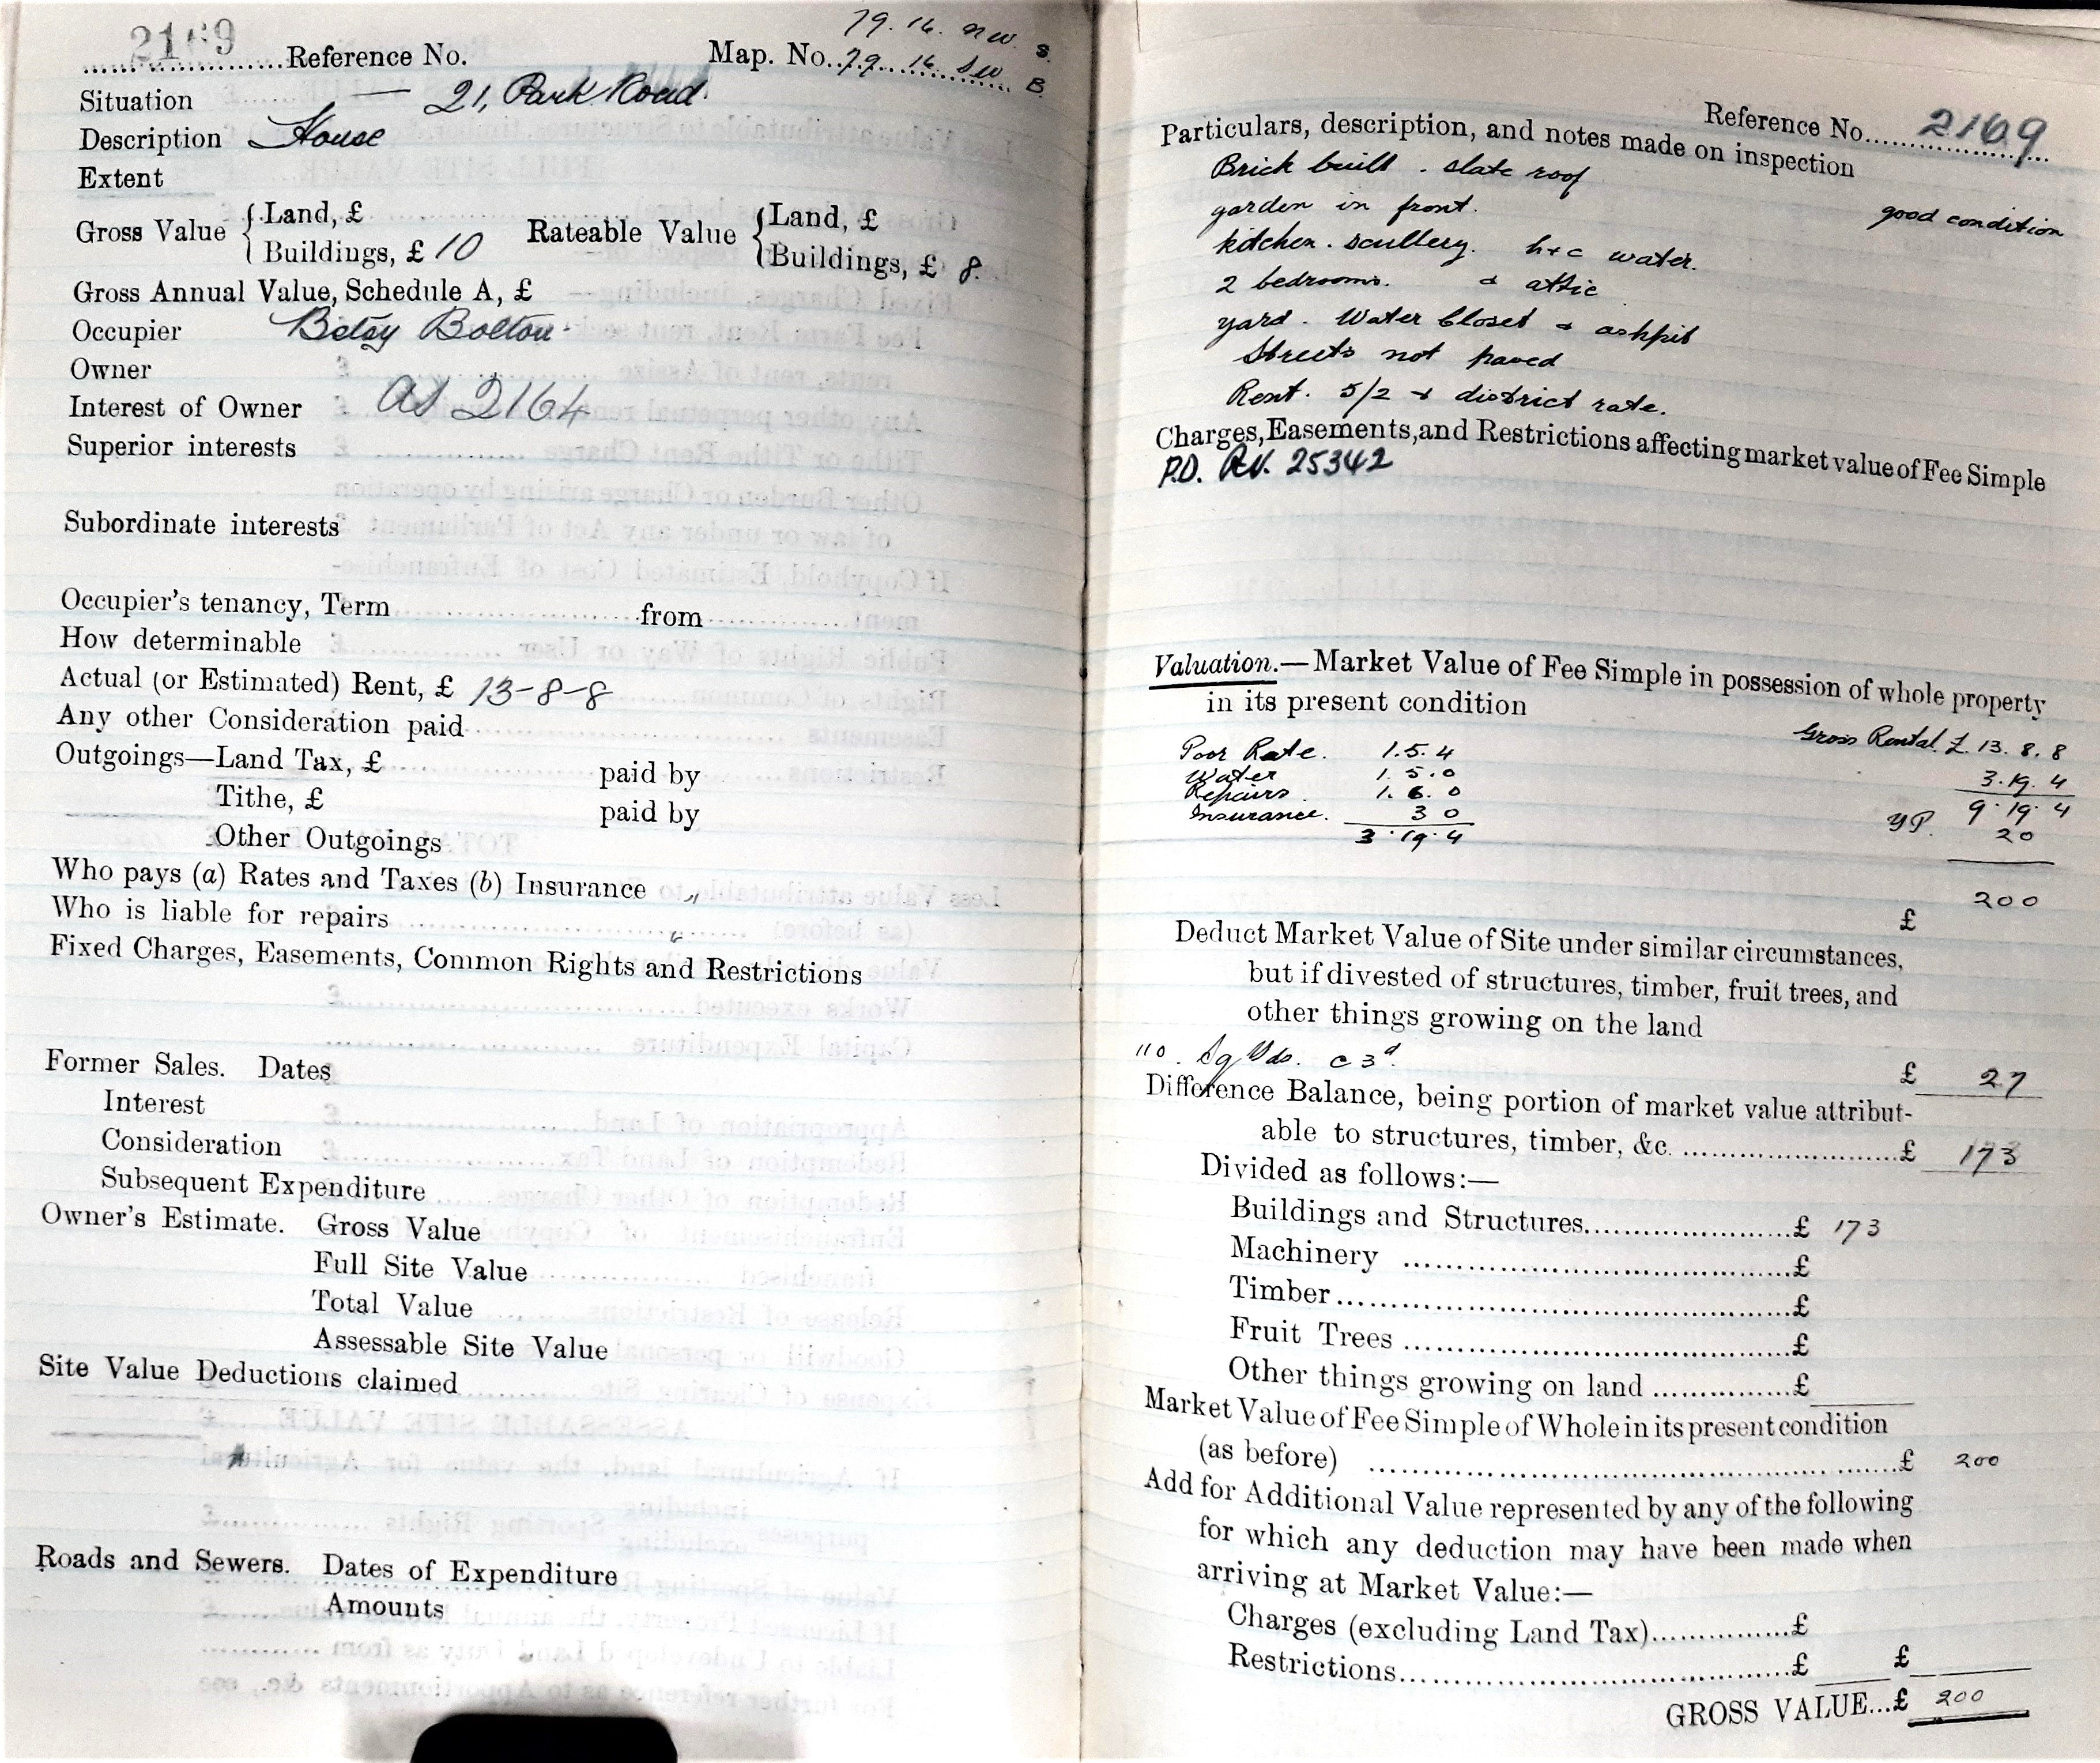 2169 Reference No. Map. No. 79. 16. NW. 8.
79. 16. SW B.
Situation — 21, Park Road.
Description House
Extent
Gross Value { Land, £ Rateable Value { Land, £
Buildings, £ 10 Buildings, £ 8.
Gross Annual Value, Schedule A, £
Occupier Betsy Bolton
Owner
Interest of Owner as 2164
Superior interests
Subordinate interests
Occupier's tenancy, Term from
How determinable
Actual (or Estimated) Rent, £ 13-8-8
Any other Consideration paid
Outgoings—Land Tax, £ paid by
Tithe, £ paid by
Other Outgoings
Who pays (a) Rates and Taxes (b) Insurance
Who is liable for repairs
Fixed Charges, Easements, Common Rights and Restrictions
Former Sales. Dates
Interest
Consideration
Subsequent Expenditure
Owner's Estimate. Gross Value
Full Site Value
Total Value
Assessable Site Value
Site Value Deductions claimed
Roads and Sewers. Dates of Expenditure
Amounts
Reference No. 2169
Particulars, description, and notes made on inspection
Brick built . slate roof
good condition
garden in front.
kitchen. scullery. h+c water.
2 bedrooms. & attic
yard. Water Closet & ashpit
Streets not paved
Rent. 5/2 + district rate.
Charges, Easements, and Restrictions affecting market value of Fee Simple
P.D. 25342
Valuation.—Market Value of Fee Simple in possession of whole property
in its present condition
Gross Rental £ 13. 8. 8
Poor Rate. 1. 5. 4
3. 19. 4
Water 1. 5. 0
9. 19. 4
Repairs 1. 6. 0
YP. 20
Insurance. 3 0
3. 19. 4
£ 200
Deduct Market Value of Site under similar circumstances,
but if divested of structures, timber, fruit trees, and
other things growing on the land
110. Sq Yds. @ 3d. £ 27
Difference Balance, being portion of market value attribut-
able to structures, timber, &c. £ 173
Divided as follows:—
Buildings and Structures £ 173
Machinery £
Timber £
Fruit Trees £
Other things growing on land £
Market Value of Fee Simple of Whole in its present condition
(as before) £ 200
Add for Additional Value represented by any of the following
for which any deduction may have been made when
arriving at Market Value:—
Charges (excluding Land Tax) £
Restrictions £ £
GROSS VALUE...£ 200